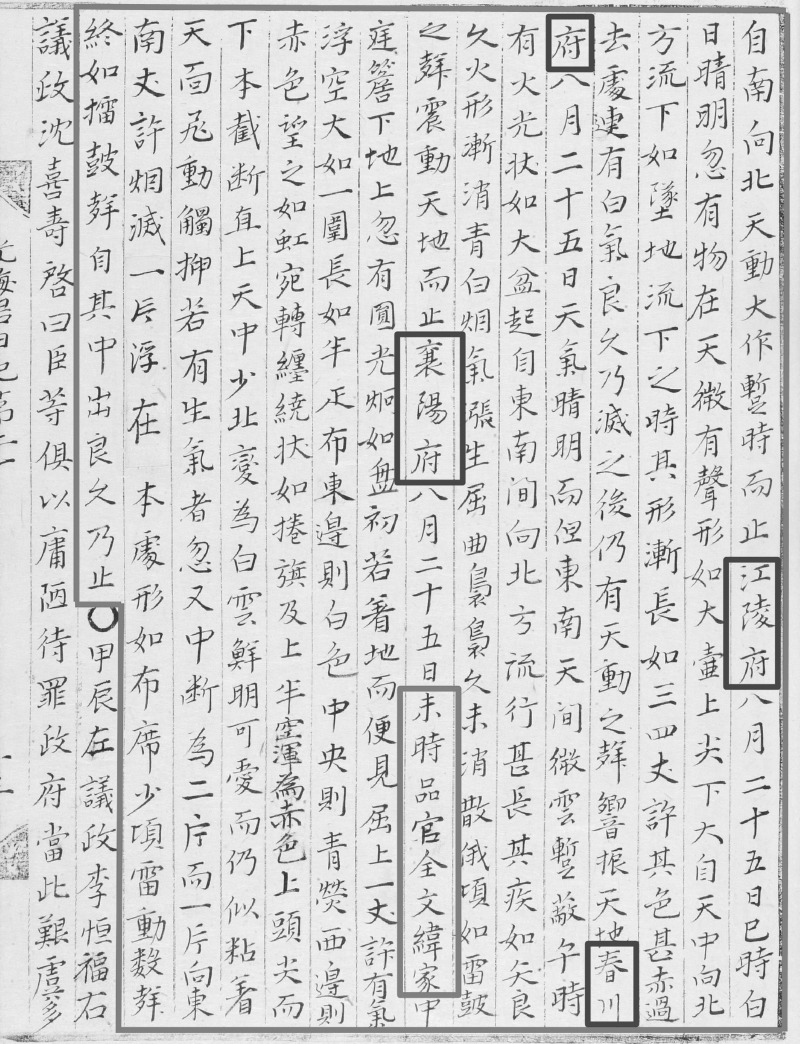 自南向北天動大作暫時而止江陵府八月二十五日巳時白
日晴明忽有物在天微有聲形如大壺上尖下大自天中向北
方流下如墜地流下之時其形漸長如三四丈許其色甚赤過
去處連有白氣良久乃滅之後仍有天動之聲響振天地春川
府八月二十五日天氣晴明而但東南天間微雲暫蔽午時
有火光狀如大盆起自東南間向北方流行甚長其疾如矢良
久火形漸消青白烟氣漲生屈曲裊裊久未消散俄頃如雷鼓
之聲震動天地而止襄陽府八月二十五日未時品官全文緯家中
庭簷下地上忽有圓光炯如盤初若着地而便見屈上一丈許有氣
浮空大如一圍長如半疋布東邊則白色中央則青熒西邊則
赤色望之如虹宛轉纏繞狀如捲旗及上半空渾為赤色上頭尖而
下本截断直上天中少北變為白雲鮮明可愛而仍似粘着
天面飛動觸抑若有生氣者忽又中断為二片而一片向東
南丈許烟滅一片浮在本處形如布席少頃雷動數聲
終如擂鼓聲自其中出良久乃止○甲辰左議政李恒福右
議政沈喜壽啓曰臣等俱以庸陋待罪政府當此艱虞多